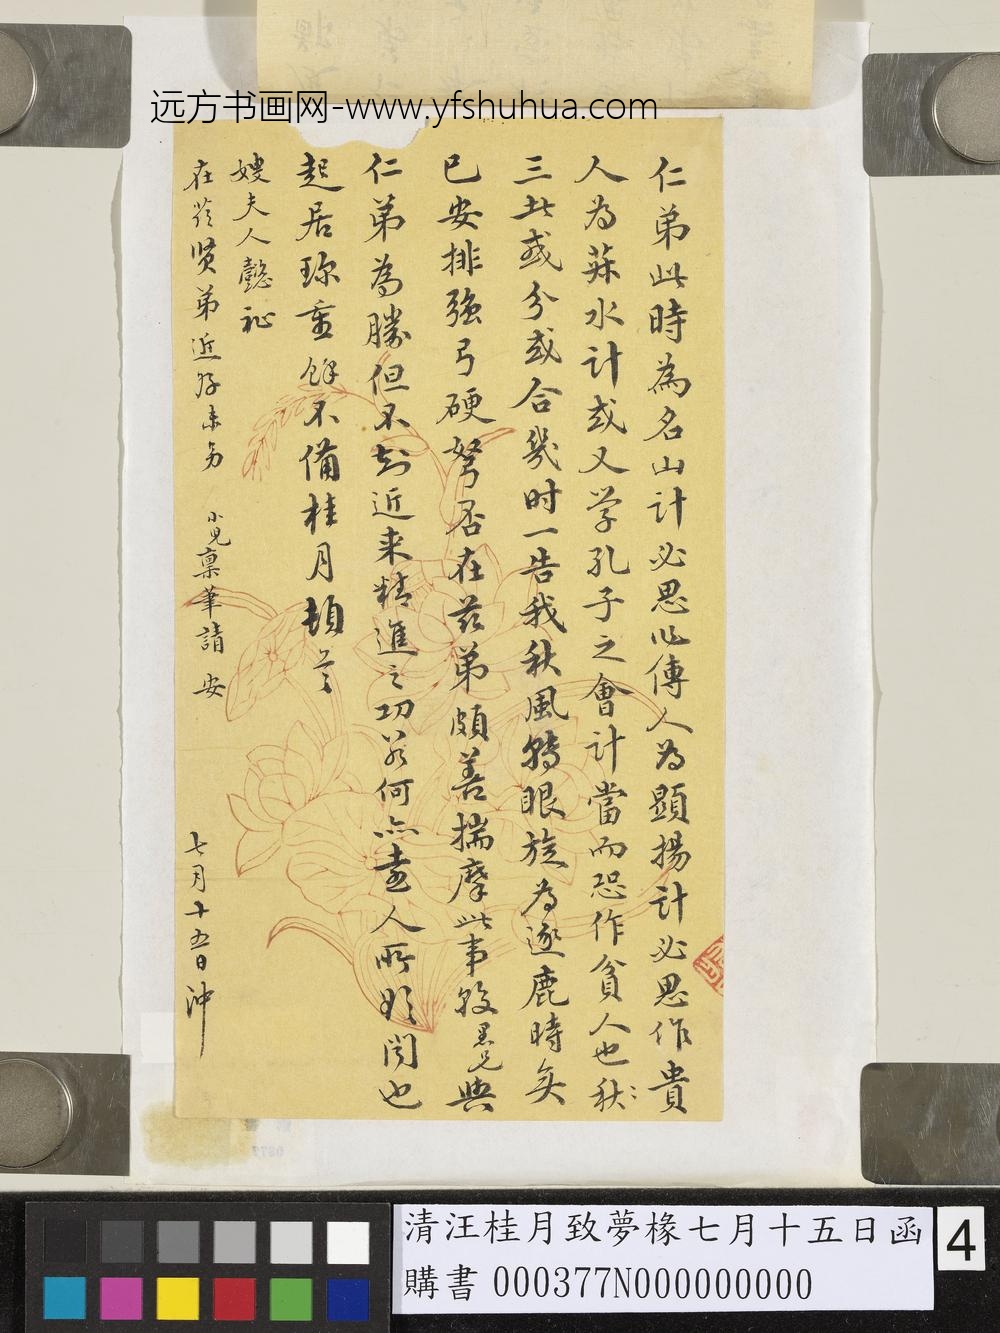 远方书画网-www.yfshuhua.com
仁弟此時為名山計必思必傳人為顯揚計必思作貴
人為菽水計或又学孔子之會計當而恐作貧人也秋〻
三此或分或合幾时一告我秋風轉眼旋為逐鹿時矣
已安排強弓硬弩否在兹弟頗善揣摩此事較墨兄與
仁弟為勝但不知近来精進之功若何亦盡人所欣聞也
起居珎重餘不備桂月頓首
嫂夫人懿祉
在兹贤弟近好未另 小兒禀筆請安
七月十五日沖
清汪桂月致夢椽七月十五日函
購書 000377N000000000
4